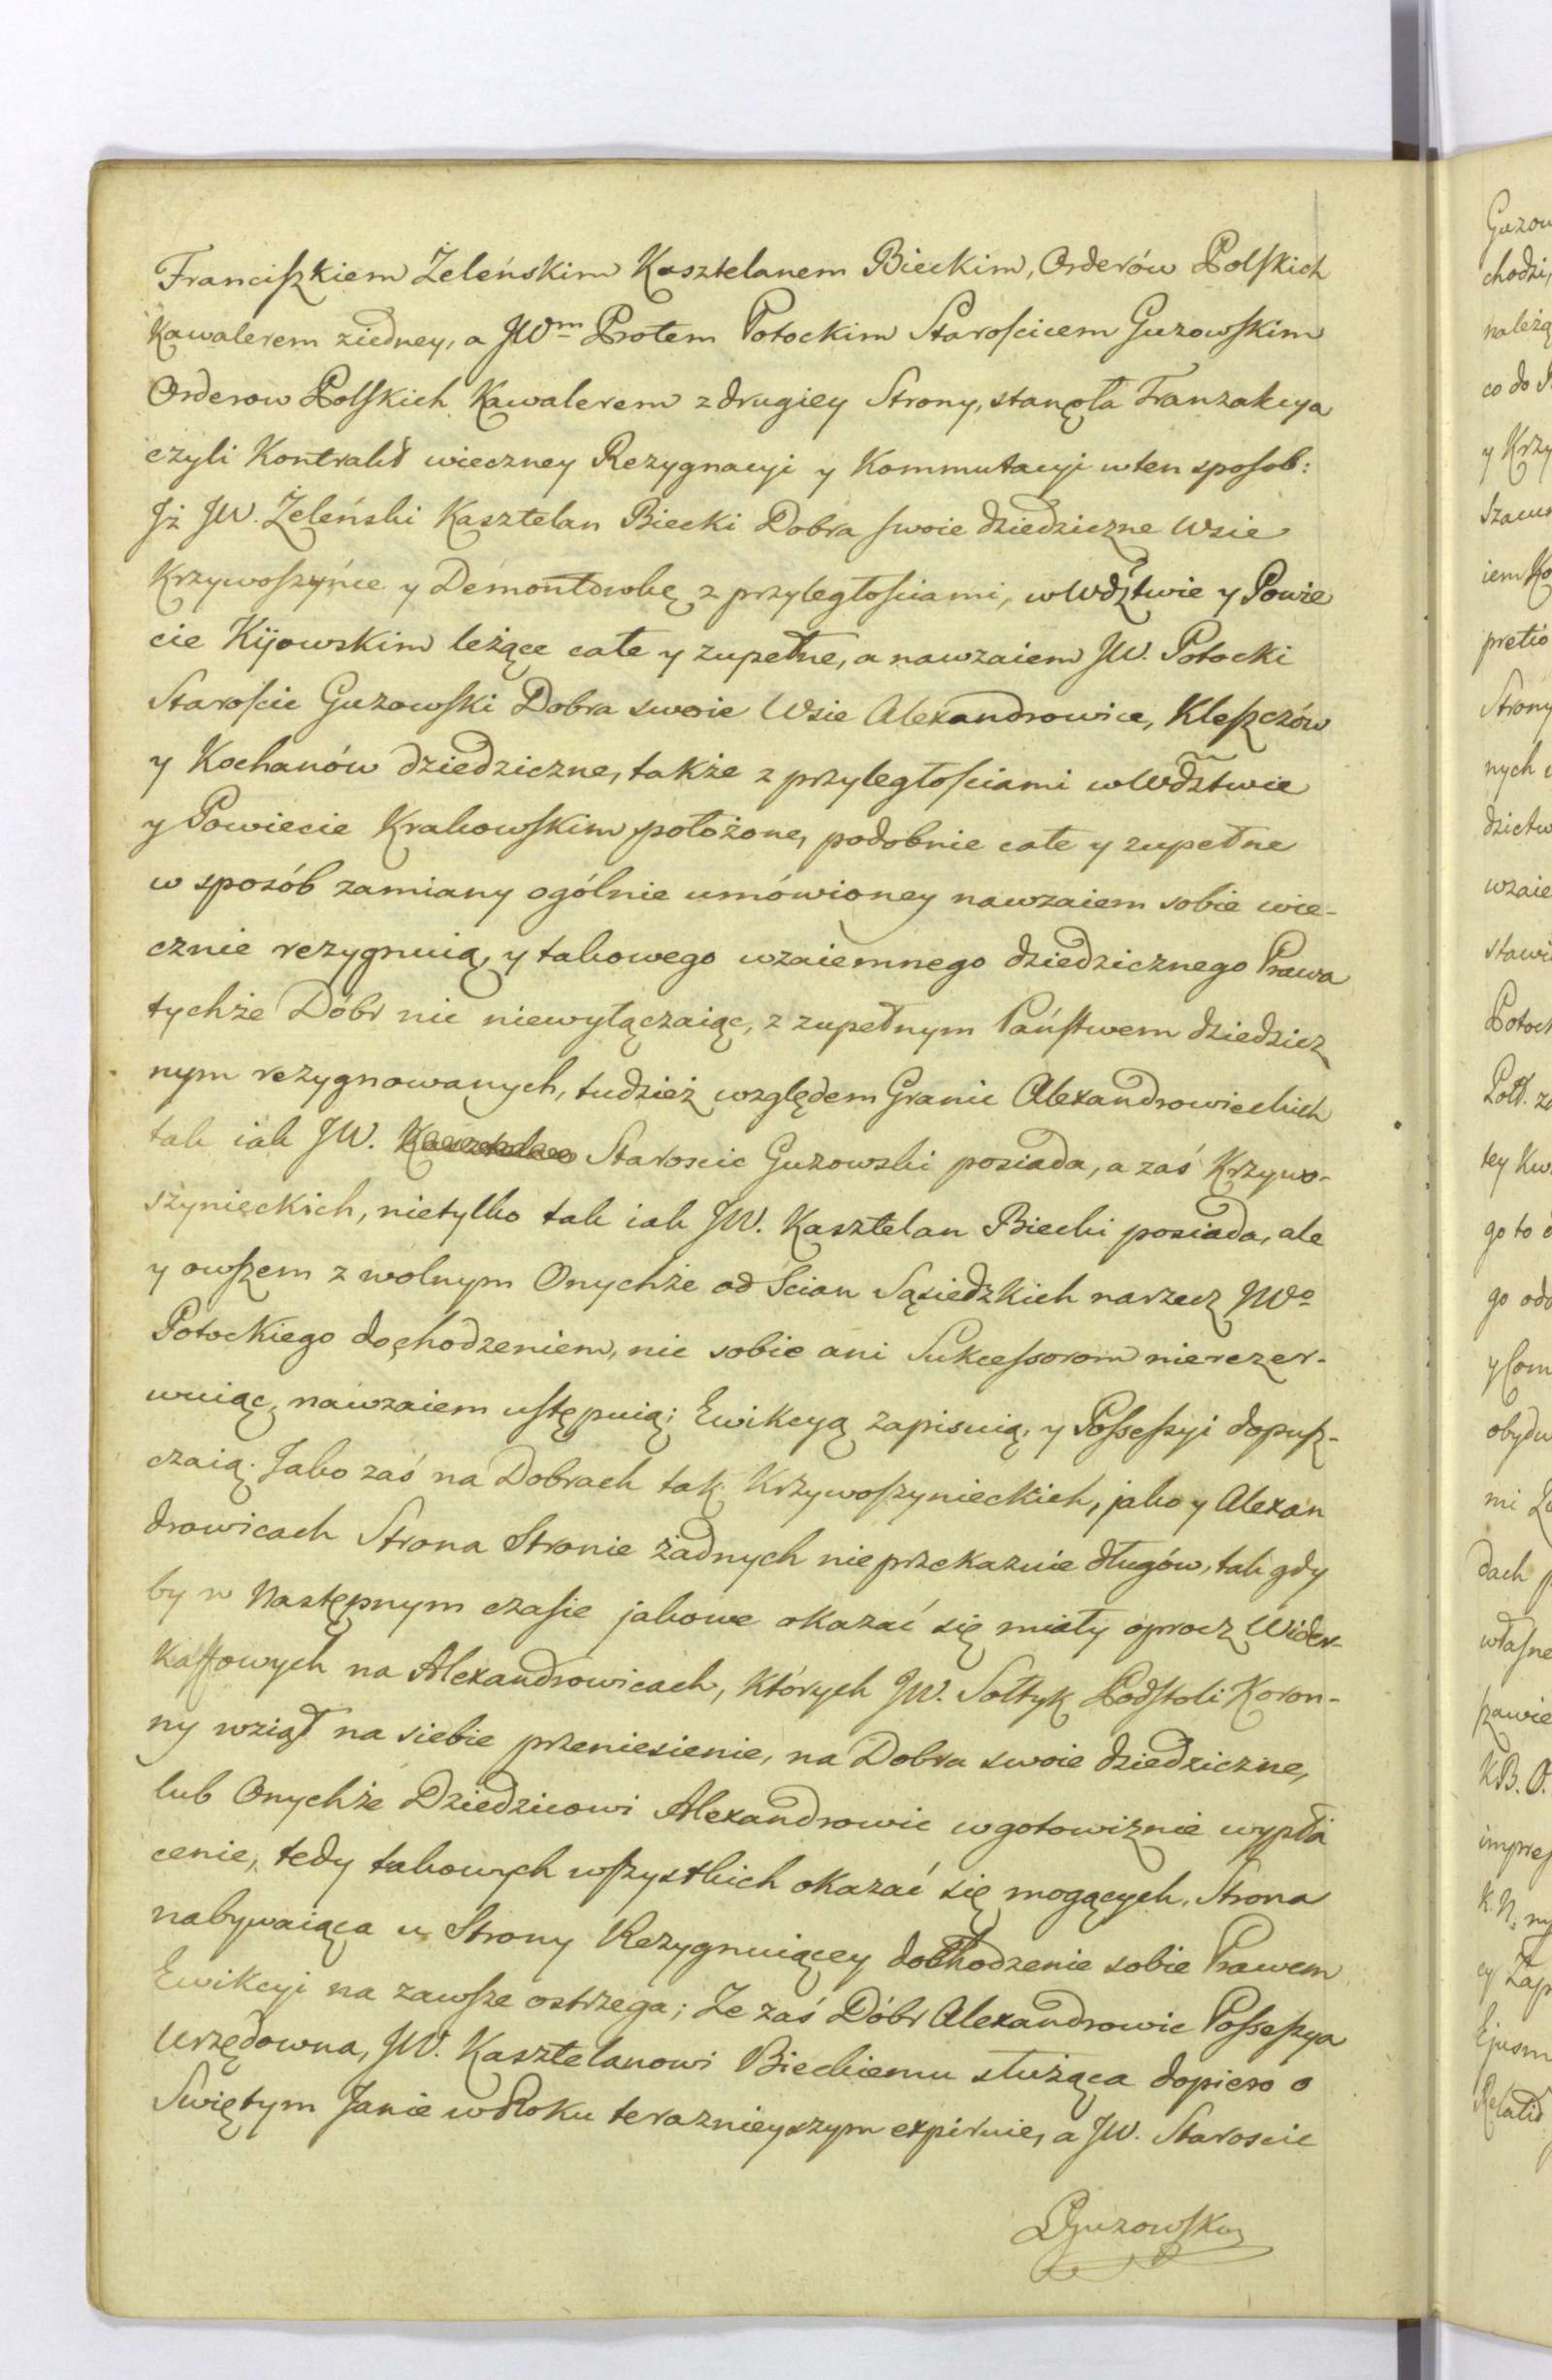 Franciszkiem Żeleńskim Kasztelanem Bieckim, Orderów Polskich
Kawalerem ziedney, a JWm Protem Potockim Starościcem Guzowskim
Orderow Polskich Kawalerem z drugiey Strony, stanęła Tranzakcya
czyli Kontrakt wieczney Rezygnacyi y Kommutacyi wten sposob:
Iż JW. Żeleński Kasztelan Biecki Dobra swoie dziedziczne Wsie
Krzywoszyńce y Demontowkę z przyległościami, w Wdztwie y Powie
cie Kijowskim leżące całe y zupełne, a nawzaiem JW. Potocki
Starościc Guzowski Dobra swoie Wsie Alexandrowice, Kleszczów
y Kochanów dziedziczne, także z przyległościami w Wdztwie
y Powiecie Krakowskim położone, podobnie całe y zupełne
w sposób zamiany ogólnie umówioney nawzaiem sobie wie-
cznie rezygnuią, y takowego wzaiemnego dziedzicznego Prawa
tychże Dóbr nic niewyłączaiąc, z zupełnym Państwem dziedzicz
nym rezygnowanych, tudzież względem Granic Alexandrowieckich
tak iak JW. Staroscic Guzowski posiada, a zaś Krzywo-
szynieckich, nietylko tak iak JW. Kasztelan Biecki posiada, ale
y owszem z wolnym Onychże od Ścian Sąsiedzkich narzecz JWo
Potockiego dochodzeniem, nic sobie ani Sukcessorom nierezer-
wuiąc, nawzaiem ustępuią; Ewikcyą zapisuią, y Possessyi dopusz-
czaią. Jako zaś na Dobrach tak Krzywoszynieckich, jako y Alexan
drowicach Strona Stronie żadnych nieprzekazuie długów, tak gdy
by w Następnym czasie jakowe okazać się miały oprocz Wider-
kaffowych na Alexandrowicach, Których JW. Sołtyk Podstoli Koron-
ny wziął na siebie przeniesienie, na Dobra swoie dziedziczne,
lub Onychże Dziedzicowi Alexandrowic wgotowiznie wypła
cenie, tedy takowych wszystkich okazać się mogących, Strona
nabywaiąca u Strony Rezygnuiącey dochodzenie sobie Prawem
Ewikcyi na zawsze ostrzega; Że zaś Dóbr Alexandrowic Possessya
Urzędowna, JW. Kasztelanowi Bieckiemu służąca dopiero o
Swiętym Janie w Roku teraznieyszym expiruie, a JW. Staroscic
Guzow
chodzi,
należą
co do
y Krzy
pretio
Strony
nych
dzictw
wzaie
stawi
Potock
tey
go to
go odd
obydw
mi
dach
własne
K.B.O.